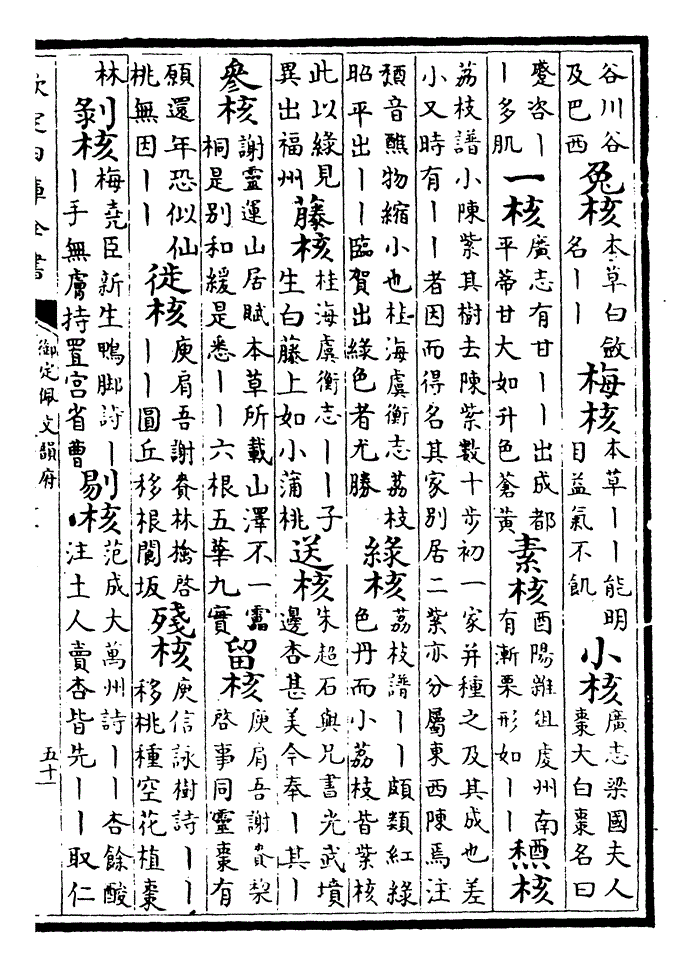 谷川谷
及巴西
兔核
本草白斂
名丨丨
梅核
本草丨丨能明
目益氣不飢
小核
廣志梁國夫人
棗大白棗名曰
蹙咨丨
丨多肌
一核
廣志有甘丨丨出成都
平蒂甘大如升色蒼黃
素核
酉陽雜俎處州南
有漸栗形如丨丨
核
荔枝譜小陳紫其樹去陳紫數十步初一家并種之及其成也差
小又時有丨丨者因而得名其家別居二紫亦分屬東西陳焉注
音醮物縮小也桂海虞衡志荔枝
昭平出丨丨臨賀出綠色者尤勝
綠核
荔枝譜丨丨頗類紅綠
色丹而小荔枝皆紫核
此以綠見
異出福州
藤核
桂海虞衡志丨丨子
生白藤上如小蒲桃
送核
朱超石與兄書光武墳
邊杏甚美今奉丨其丨
參核
謝靈運山居賦本草所載山澤不一靁
桐是別和緩是悉丨丨六根五華九實
留核
庾肩吾謝賚梨
啓事同靈棗有
願還年恐似仙
桃無因丨丨
徙核
庾肩吾謝賚林檎啓
丨丨圓丘移根閬坂
殘核
庾信詠樹詩丨丨
移桃種空花植棗
林
剝核
梅堯臣新生鴨脚詩丨
丨手無膚持置宮省曹
剔核
范成大萬州詩丨丨杏餘酸
注土人賣杏皆先丨丨取仁
欽定四庫全書
御定佩文韻府
五十一